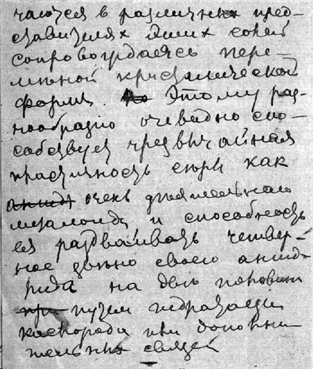 чаются в различных пред-
ставителях этих солей
сопровождаясь пере-
менной кристаллической
формы. Этому раз-
нообразию очевидно спо-
собствует чрезвычайная
пластичность серы как
очень деятельного
металлоида и способность
ея раздваивать четвер-
ное звено своего ангид-
рида на две половины
путем гидратации
кислорода или дополни-
тельных связей